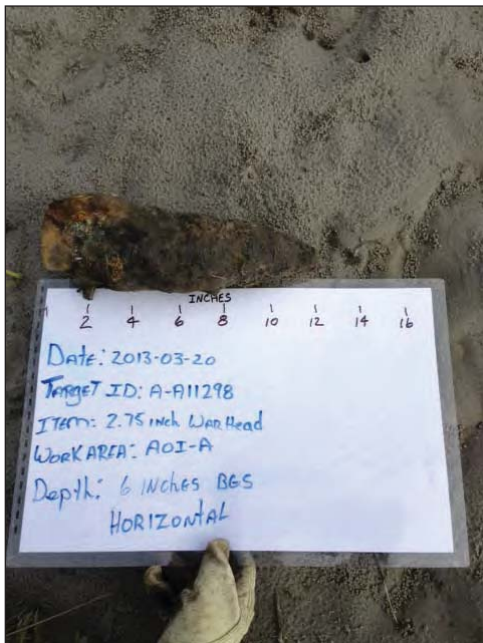 INCHES
2 4 6 8 10 12 14 16
DATE: 2013-03-20
TARGET ID: A-A11298
ITEM: 2.75 inch WarHead
WORK AREA: AOI-A
Depth: 6 INCHES BGS
HORIZONTAL